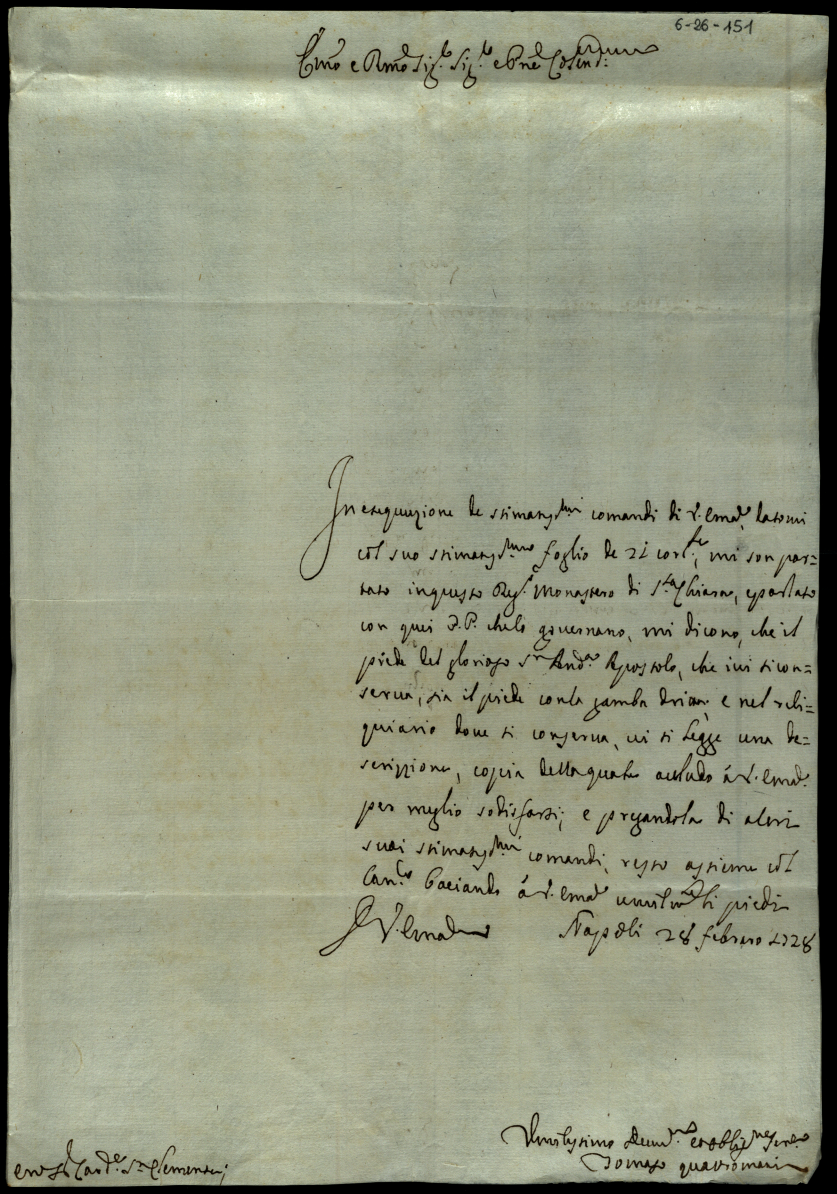 6-26-151
Emo e Rmo Sig.r Sig.r e Pne Colendmo:
In esequuzione de stimatissmi comandi di V. Emza, datomi
col suo stimatissmo foglio de 21 corrte, mi son por=
tato in questo Regl Monastero di Sta Chiara, e parlato
con quei P.P. che lo governano, mi dicono, che il
piede del glorioso Sn Andra Apostolo, che ivi si con=
serva, sia il piede con la gamba dritta; e nel reli=
quiario dove si conserva, vi si legge una de=
scrizzione, copia della quale acludo á V. Emza
per meglio sodisfarsi; e pregandola di altri
suoi stimatissmi comandi, resto assieme col
baciando á V. Emza umilmte li piedi
D V. Emza Napoli 28 febraro 1728
Umilissimo Devmo et obligmo Serre
Tomaso quattromani
Cardle Sn Clemente;